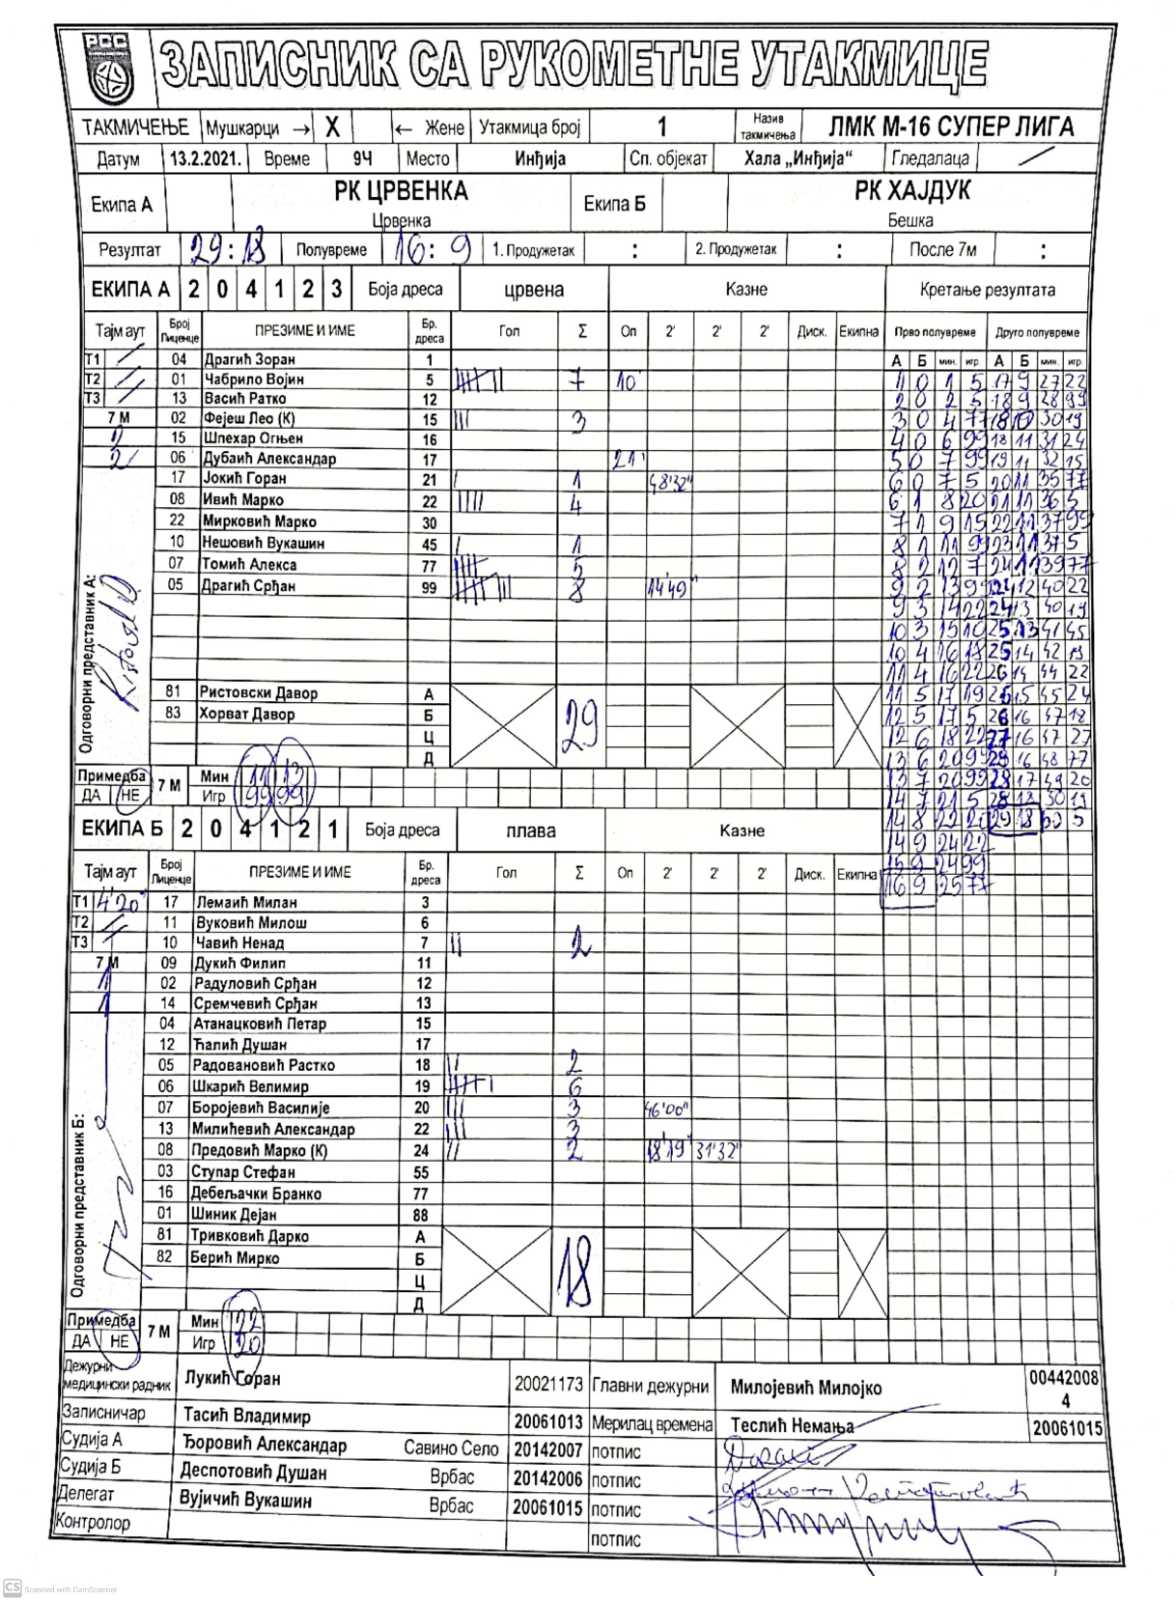 РСС
ЗАПИСНИК СА РУКОМЕТНЕ УТАКМИЦЕ
ТАКМИЧЕЊЕ Мушкарци → X ← Жене Утакмица број 1 Назив такмичења ЛМК М-16 СУПЕР ЛИГА
Датум 13.2.2021. Време 9Ч Место Инђија Сп. објекат Хала „Инђија“ Гледалаца /
Екипа А РК ЦРВЕНКА Екипа Б РК ХАЈДУК
Црвенка Бешка
Резултат 29:18 Полувреме 16:9 1. Продужетак : 2. Продужетак : После 7м :
ЕКИПА А 2 0 4 1 2 3 Боја дреса црвена Казне Кретање резултата
Тајм аут Број Лиценце ПРЕЗИМЕ И ИМЕ Бр. дреса Гол Σ Оп 2' 2' 2' Диск. Екипна Прво полувреме Друго полувреме
А Б мин. игр. А Б мин. игр
Т1 04 Драгић Зоран 1
Т2 01 Чабрило Војин 5 7 10' 1 0 1 5 17 9 27 22
Т3 13 Васић Ратко 12 2 0 2 5 18 9 28 99
7 М 02 Фејеш Лео (К) 15 3 3 0 4 77 18 10 30 19
2 15 Шпехар Огњен 16 4 0 6 99 18 11 31 24
2 06 Дубаић Александар 17 21' 5 0 7 99 19 11 32 15
17 Јокић Горан 21 1 48'32" 6 0 7 5 20 11 35 77
08 Ивић Марко 22 4 6 1 8 20 21 11 36 5
22 Мирковић Марко 30 7 1 9 15 22 11 37 99
10 Нешовић Вукашин 45 1 8 1 11 99 23 11 37 5
07 Томић Алекса 77 5 8 2 12 7 24 11 39 77
05 Драгић Срђан 99 8 14'49" 9 2 13 99 24 12 40 22
9 3 14 22 24 13 40 19
10 3 15 10 25 13 41 45
10 4 16 18 25 14 42 19
11 4 16 22 26 14 44 22
81 Ристовски Давор А 29 11 5 17 19 26 15 45 24
83 Хорват Давор Б 12 5 17 5 26 16 47 18
Ц 12 6 18 22 27 16 47 27
Д 13 6 20 99 28 16 48 77
Одговорни представник А:
Примедба ДА НЕ 7 М Мин 11 13 13 7 20 99 28 17 49 20
Игр 99 99 14 7 21 5 28 18 50 19
ЕКИПА Б 2 0 4 1 2 1 Боја дреса плава Казне 14 8 22 20 29 18 50 5
14 9 24 22
Тајм аут Број Лиценце ПРЕЗИМЕ И ИМЕ Бр. дреса Гол Σ Оп 2' 2' 2' Диск. Екипна 15 9 24 99
16 9 25 77
Т1 4'20" 17 Лемаић Милан 3
Т2 11 Вуковић Милош 6
Т3 10 Чавић Ненад 7 2
7 М 09 Дукић Филип 11
1 02 Радуловић Срђан 12
1 14 Сремчевић Срђан 13
04 Атанацковић Петар 15
12 Ћалић Душан 17
05 Радовановић Растко 18 2
06 Шкарић Велимир 19 6
07 Боројевић Василије 20 3 46'00"
13 Милићевић Александар 22 3
08 Предовић Марко (К) 24 2 18'19" 31'32"
03 Ступар Стефан 55
16 Дебељачки Бранко 77
01 Шиник Дејан 88
81 Тривковић Дарко А 18
82 Берић Мирко Б
Ц
Д
Одговорни представник Б:
Примедба ДА НЕ 7 М Мин 22
Игр 20
Дежурни медицински радник Лукић Горан 20021173 Главни дежурни Милојевић Милојко 004420084
Записничар Тасић Владимир 20061013 Мерилац времена Теслић Немања 20061015
Судија А Ђоровић Александар Савино Село 20142007 потпис
Судија Б Деспотовић Душан Врбас 20142006 потпис
Делегат Вујичић Вукашин Врбас 20061015 потпис
Контролор потпис
CS Scanned with CamScanner